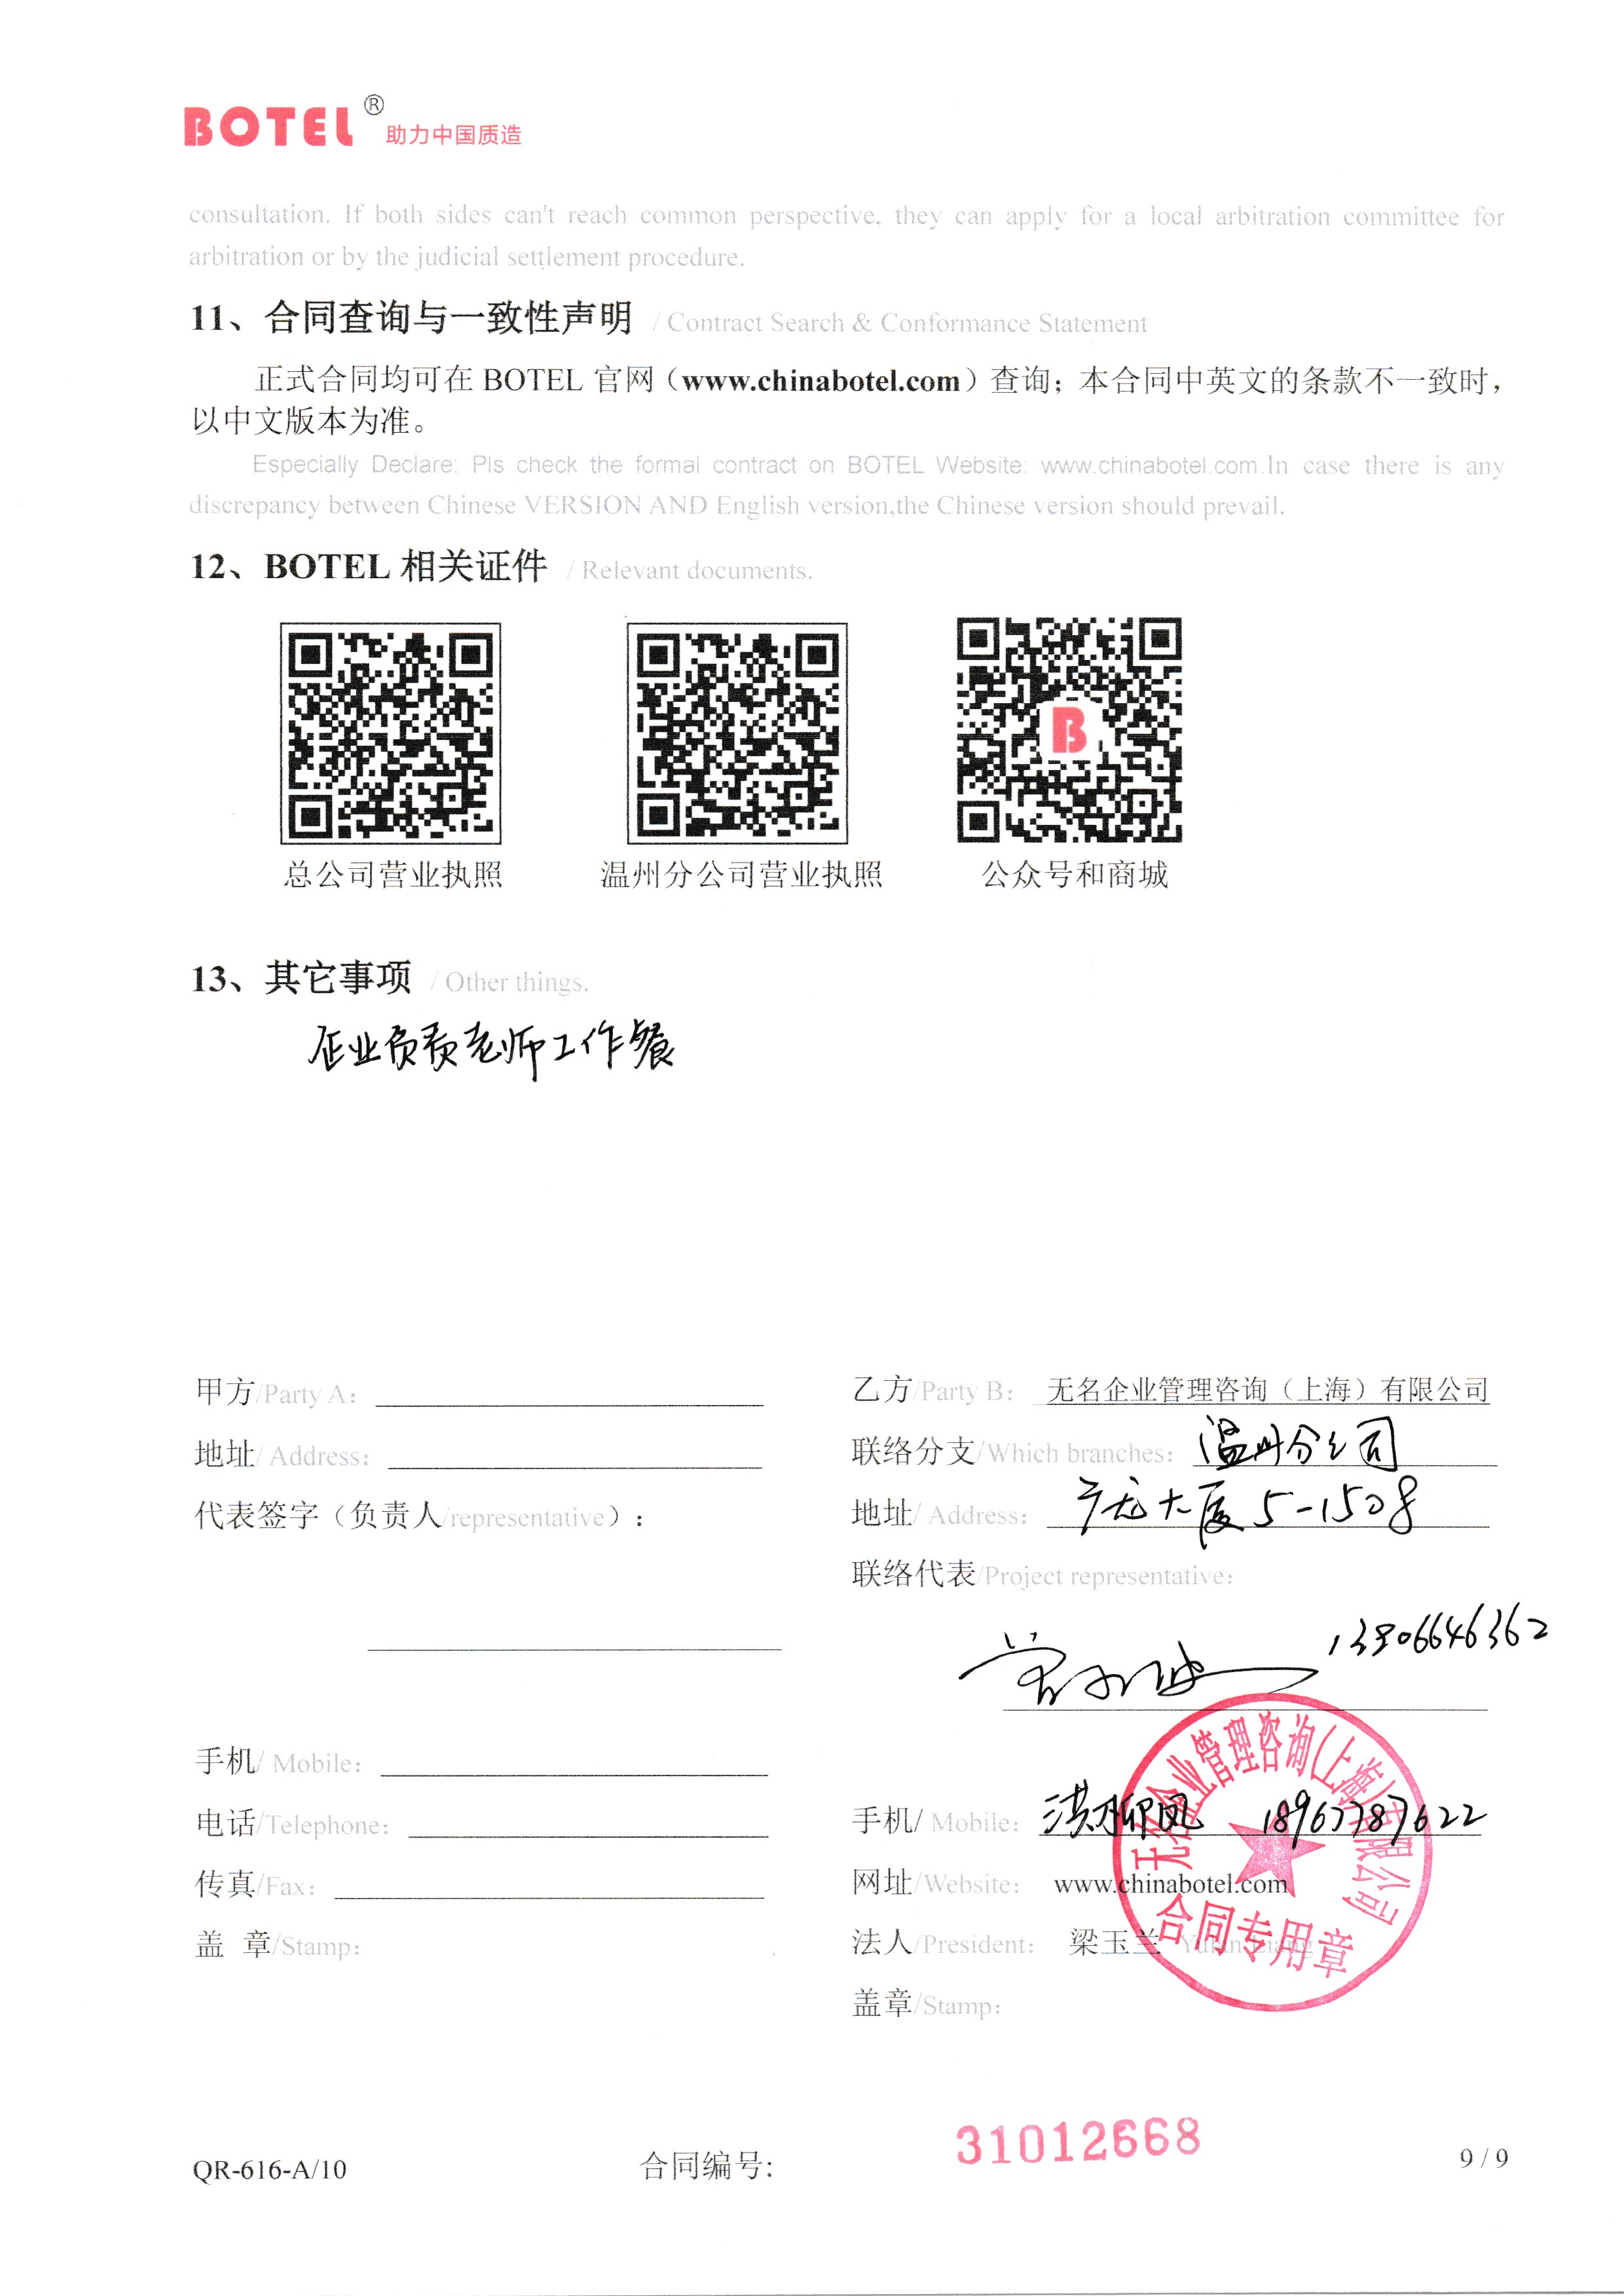 BOTEL® 助力中国质造
consultation. If both sides can't reach common perspective, they can apply for a local arbitration committee for
arbitration or by the judicial settlement procedure.
11、合同查询与一致性声明 / Contract Search & Conformance Statement
正式合同均可在 BOTEL 官网（www.chinabotel.com）查询；本合同中英文的条款不一致时，
以中文版本为准。
Especially Declare: Pls check the formal contract on BOTEL Website: www.chinabotel.com.In case there is any
discrepancy between Chinese VERSION AND English version,the Chinese version should prevail.
12、BOTEL 相关证件 / Relevant documents.
B
总公司营业执照 温州分公司营业执照 公众号和商城
13、其它事项 / Other things.
企业负责老师工作餐
甲方/Party A：
地址/ Address：
代表签字（负责人/representative）：
手机/ Mobile：
电话/Telephone：
传真/Fax：
盖 章/Stamp：
乙方/Party B： 无名企业管理咨询（上海）有限公司
联络分支/Which branches： 温州分公司
地址/ Address： 大厦5-1508
联络代表/Project representative：
13806646362
手机/ Mobile： 18967787622
网址/Website： www.chinabotel.com
法人/President： 梁玉兰 Yulan Liang
盖章/Stamp：
无名企业管理咨询(上海)有限公司
合同专用章
QR-616-A/10 合同编号: 31012668 9 / 9